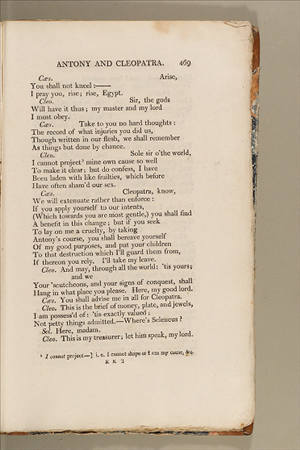 ANTONY AND CLEOPATRA. 469
Cæs. Arise,
You shall not kneel:——
I pray you, rise; rise, Egypt.
Cleo. Sir, the gods
Will have it thus; my master and my lord
I must obey.
Cæs. Take to you no hard thoughts:
The record of what injuries you did us,
Though written in our flesh, we shall remember
As things but done by chance.
Cleo. Sole sir o'the world,
I cannot project¹ mine own cause so well
To make it clear; but do confess, I have
Been laden with like frailties, which before
Have often sham'd our sex.
Cæs. Cleopatra, know,
We will extenuate rather than enforce:
If you apply yourself to our intents,
(Which towards you are most gentle,) you shall find
A benefit in this change; but if you seek
To lay on me a cruelty, by taking
Antony's course, you shall bereave yourself
Of my good purposes, and put your children
To that destruction which I'll guard them from,
If thereon you rely. I'll take my leave.
Cleo. And may, through all the world: 'tis yours;
and we
Your 'scutcheons, and your signs of conquest, shall
Hang in what place you please. Here, my good lord.
Cæs. You shall advise me in all for Cleopatra.
Cleo. This is the brief of money, plate, and jewels,
I am possess'd of: 'tis exactly valued;
Not petty things admitted.—Where's Seleucus?
Sel. Here, madam.
Cleo. This is my treasurer; let him speak, my lord.
¹ I cannot project—] i. e. I cannot shape or form my cause, &c.
K K 2